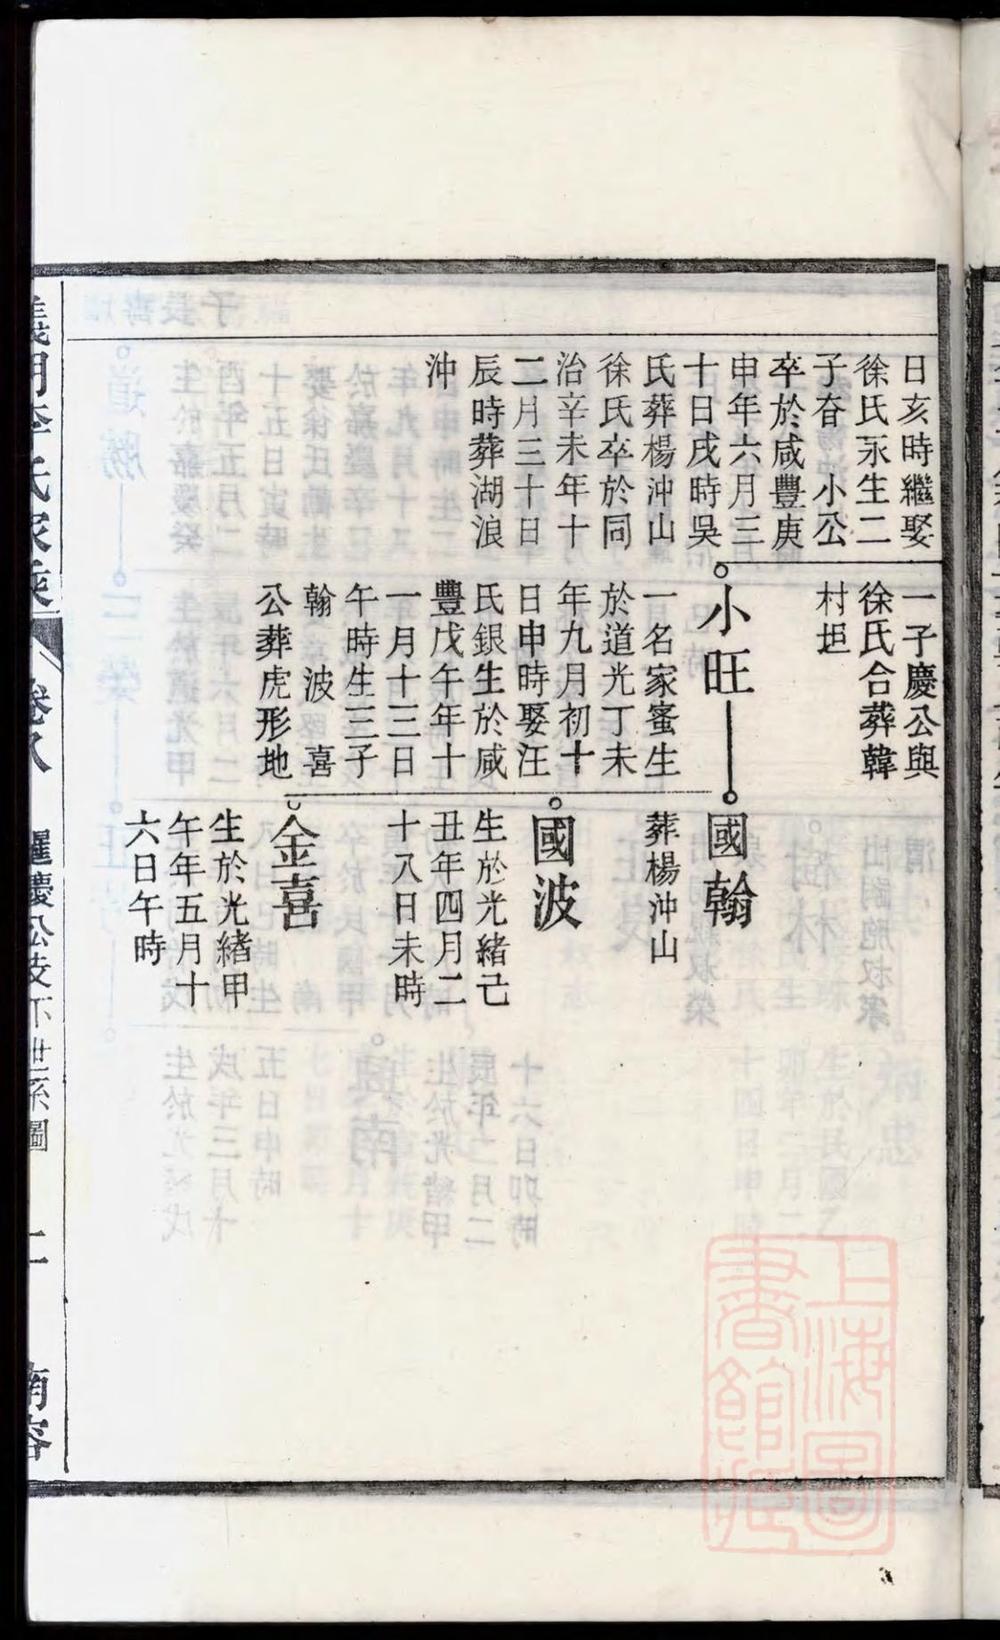 日亥時繼娶
徐氏永生二
子旾小公
卒於咸豐庚
申年六月三
十日戌時吳
氏葬楊沖山
徐氏卒於同
治辛未年十
二月三十日
辰時葬湖浪
沖
一子慶公與
徐氏合葬韓
村坦
小旺
一名家蜜生
於道光丁未
年九月初十
日申時娶汪
氏銀生於咸
豐戊午年十
一月十三日
午時生三子
翰 波 喜
公葬虎形地
國翰
葬楊沖山
國波
生於光緒己
丑年四月二
十八日未時
金喜
生於光緒甲
午年五月十
六日午時
義門李氏家乘
卷八
慶公支下世系圖
上海圖書館藏